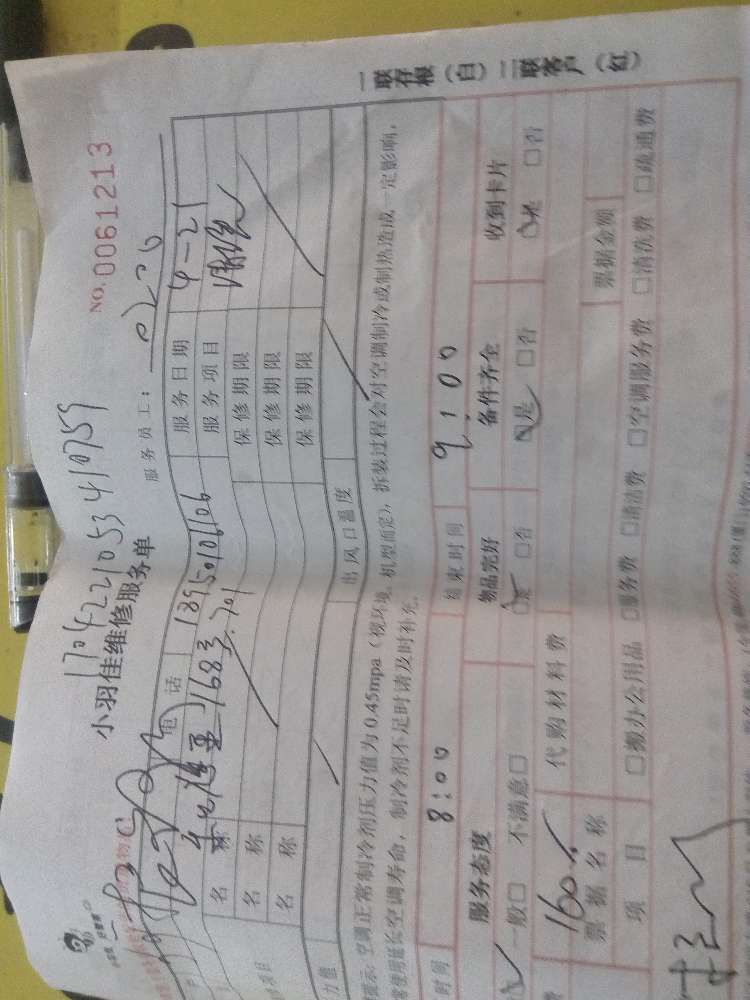 一联存根（白）二联客户（红）
NO.0061213
17042221053410759
小羽佳维修服务单
服务员工：0200
电话 18950106106 服务日期 4-21
168号.701 服务项目
名称 保修期限
名称 保修期限
名称 保修期限
力值 出风口温度
提示：空调正常制冷剂压力值为0.45mpa（视环境、机型而定），拆装过程会对空调制冷或制热造成一定影响，
使用延长空调寿命，制冷剂不足时请及时补充。
时间 8:00 结束时间 9:00
服务态度 物品完好 备件齐全 收到卡片
一般□ 不满意□ □是 □否 □是 □否 □是 □否
费 160 代购材料费
票据名称 票据金额
项目 □搬办公用品 □服务费 □清洁费 □空调服务费 □清洗费 □疏通费